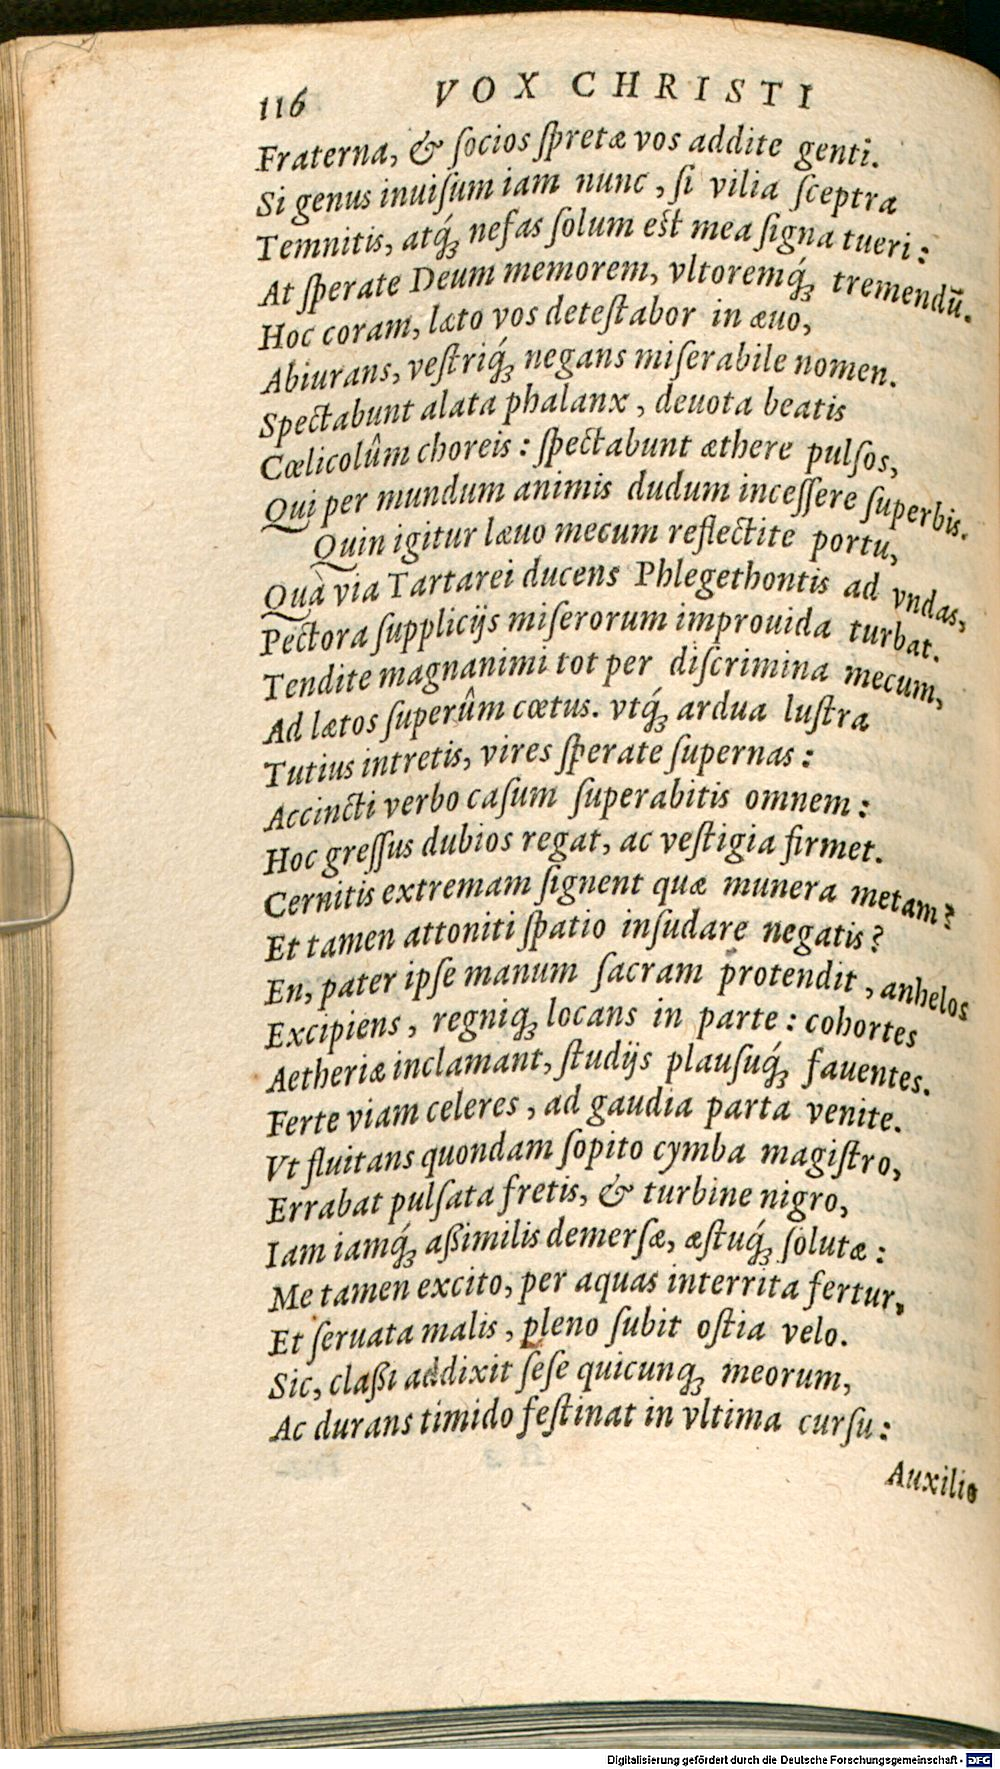 116 VOX CHRISTI
Fraterna, & ſocios ſpretæ vos addite genti.
Si genus inuiſum iam nunc, ſi vilia ſceptra
Temnitis, atq́; nefas ſolum est mea ſigna tueri:
At ſperate Deum memorem, vltoremq́; tremendũ.
Hoc coram, læto vos deteſtabor in æuo,
Abiurans, veſtriq́; negans miſerabile nomen.
Spectabunt alata phalanx, deuota beatis
Cœlicolûm choreis: ſpectabunt æthere pulſos,
Qui per mundum animis dudum inceſſere ſuperbis.
Quin igitur læuo mecum reflectite portu,
Quà via Tartarei ducens Phlegethontis ad vndas,
Pectora ſupplicijs miſerorum improuida turbat.
Tendite magnanimi tot per diſcrimina mecum,
Ad lætos ſuperûm cœtus. vtq́; ardua luſtra
Tutius intretis, vires ſperate ſupernas:
Accincti verbo caſum ſuperabitis omnem:
Hoc greſſus dubios regat, ac veſtigia firmet.
Cernitis extremam ſignent quæ munera metam?
Et tamen attoniti ſpatio inſudare negatis?
En, pater ipſe manum ſacram protendit, anhelos
Excipiens, regniq; locans in parte: cohortes
Aetheriæ inclamant, ſtudijs plauſuq́; fauentes.
Ferte viam celeres, ad gaudia parta venite.
Vt fluitans quondam ſopito cymba magiſtro,
Errabat pulſata fretis, & turbine nigro,
Iam iamq́; aßimilis demerſæ, æſtuq́; ſolutæ:
Me tamen excito, per aquas interrita fertur,
Et ſeruata malis, pleno ſubit oſtia velo.
Sic, claßi addixit ſeſe quicunq; meorum,
Ac durans timido feſtinat in vltima curſu:
Auxilio
Digitalisierung gefördert durch die Deutsche Forschungsgemeinschaft - DFG